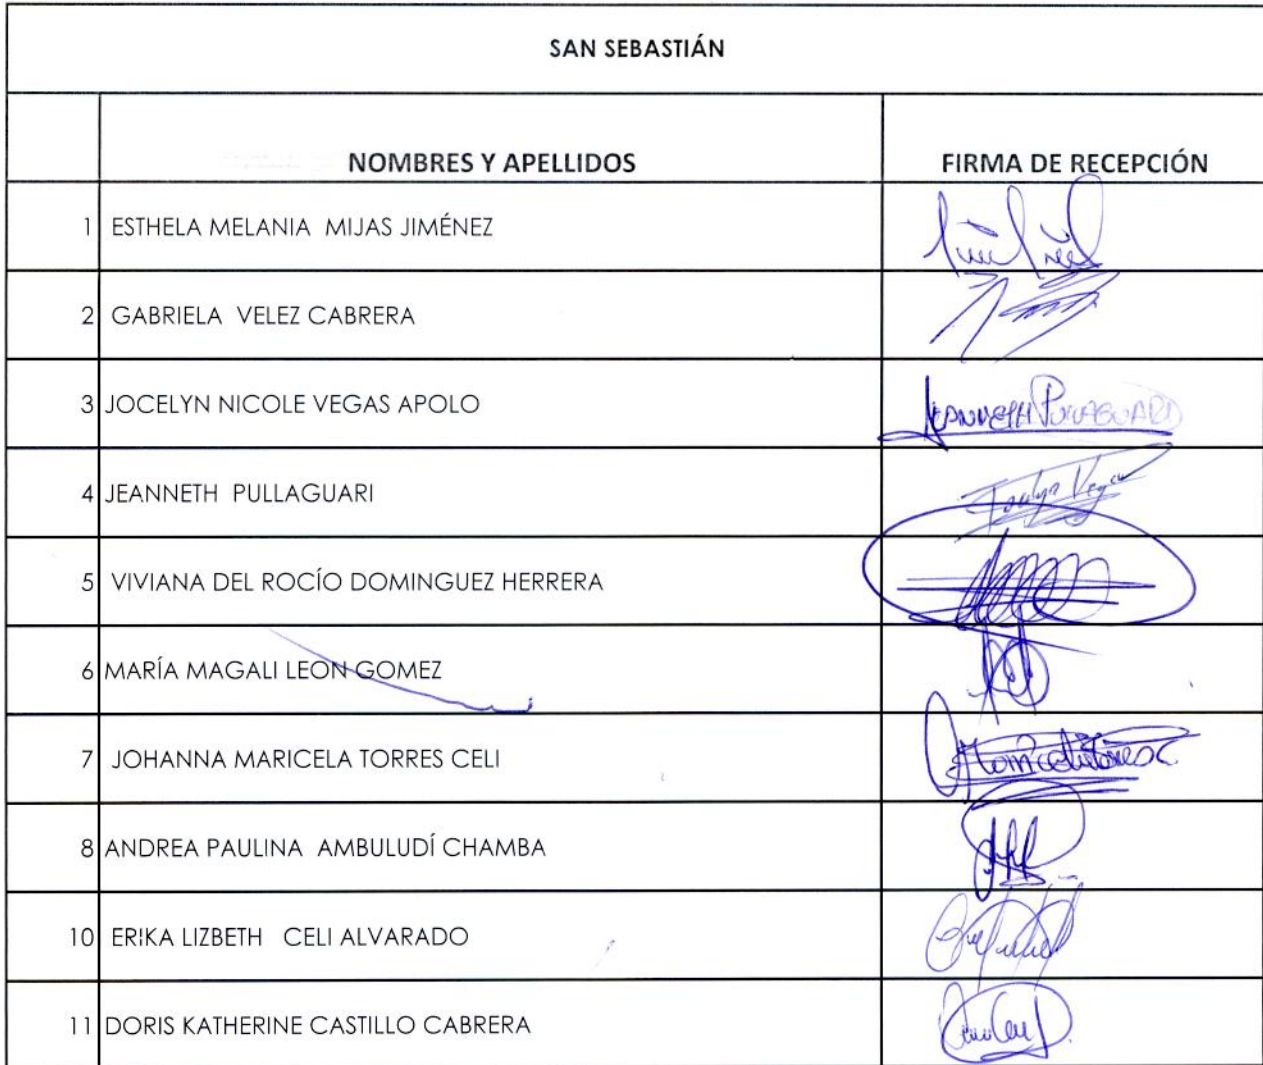 SAN SEBASTIÁN
NOMBRES Y APELLIDOS FIRMA DE RECEPCIÓN
1 ESTHELA MELANIA MIJAS JIMÉNEZ
2 GABRIELA VELEZ CABRERA
3 JOCELYN NICOLE VEGAS APOLO JEANNETH PULLAGUARI
4 JEANNETH PULLAGUARI
5 VIVIANA DEL ROCÍO DOMINGUEZ HERRERA
6 MARÍA MAGALI LEON GOMEZ
7 JOHANNA MARICELA TORRES CELI
8 ANDREA PAULINA AMBULUDÍ CHAMBA
10 ERIKA LIZBETH CELI ALVARADO
11 DORIS KATHERINE CASTILLO CABRERA